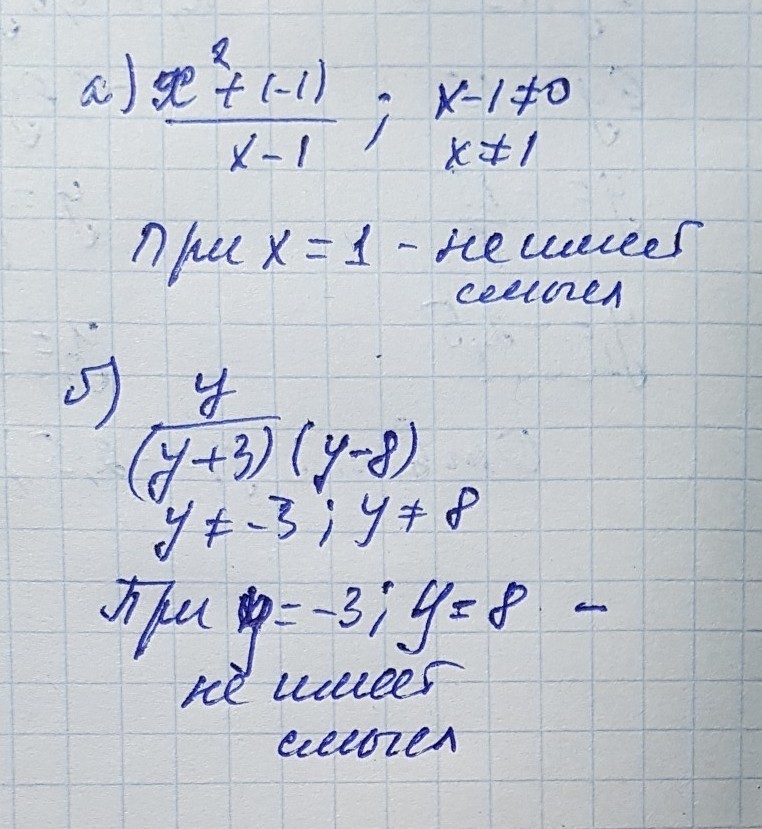 а) x² + (-1) ; x-1≠0
x-1 x≠1
При x = 1 - не имеет
смысл
б) y
(y+3) (y-8)
y ≠ -3 ; y ≠ 8
При y = -3 ; y = 8 -
не имеет
смысл